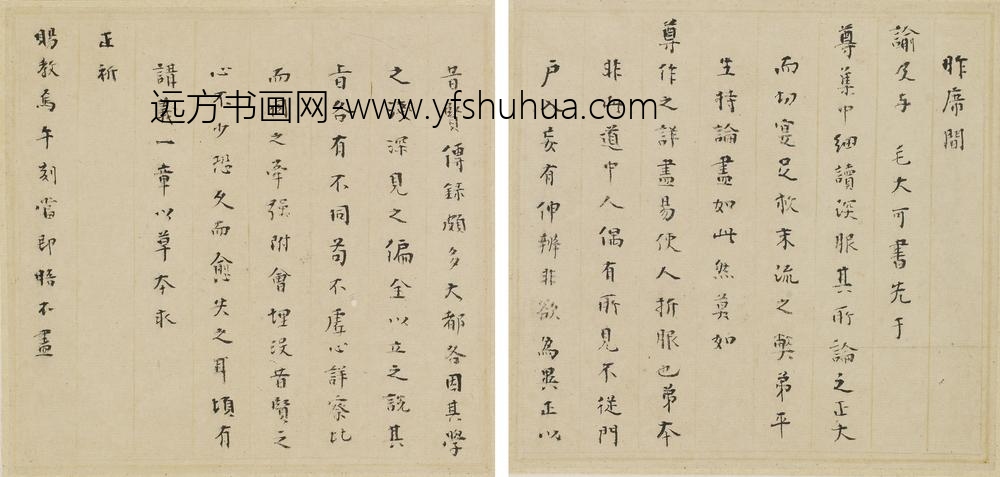 昨席間
諭及与 毛大可書先于
尊集中细讀深服其所論之正大
而切寔足救末流之獘弟平
生持論盡如此然莫如
尊作之詳盡易使人折服也弟本
非 道中人偶有所見不從門
户 妄有伸辨非欲為異正以
昔賢傳録頗多大都各因其學
之淺深見之徧全以立之説其
旨各有不同苟不虚心詳察比
而 之牽强附會埋没昔賢之
心不少恐久而愈失之耳頃有
講義一章以草本求
正祈
賜教為午刻當即晤不盡
远方书画网 www.yfshuhua.com